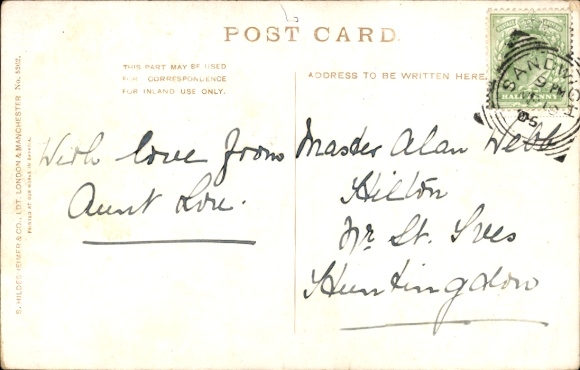 POST CARD.
THIS PART MAY BE USED
FOR CORRESPONDENCE
FOR INLAND USE ONLY.
ADDRESS TO BE WRITTEN HERE.
HALFPENNY
SANDWICH
9 PM
05
With love from
Aunt Lou.
Master Alan Webb
Hilton
Nr St. Ives
Huntingdon
S. HILDESHEIMER & CO., LDT. LONDON & MANCHESTER No. 5202.
PRINTED AT OUR WORKS IN BAVARIA.